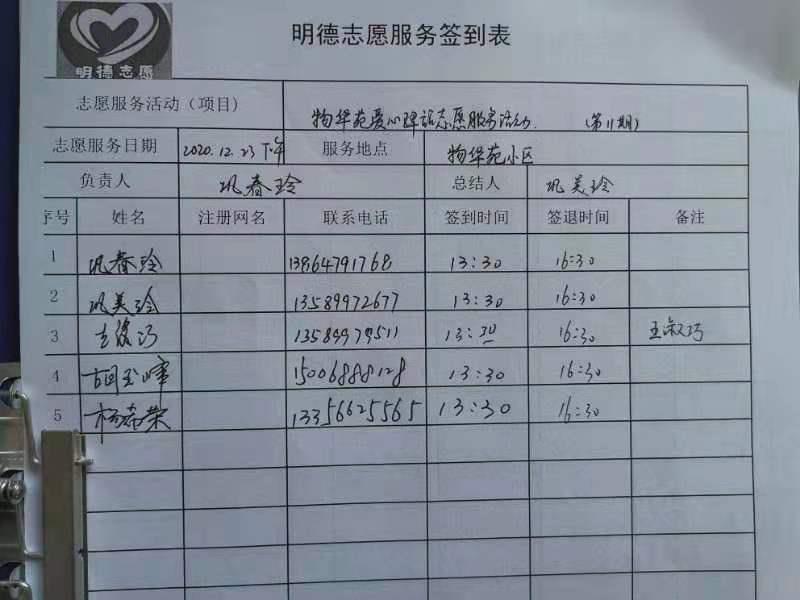 明德志愿
明德志愿服务签到表
志愿服务活动（项目） 物华苑爱心理话志愿服务活动. （第11期）
志愿服务日期 2020.12.23下午 服务地点 物华苑小区
负责人 巩春玲 总结人 巩美玲
序号 姓名 注册网名 联系电话 签到时间 签退时间 备注
1 巩春玲 13864791768 13:30 16:30
2 巩美玲 13589972677 13:30 16:30
3 13589979511 13:30 16:30 王淑巧
4 胡玉峰 15006888128 13:30 16:30
5 杨希荣 13356625565 13:30 16:30